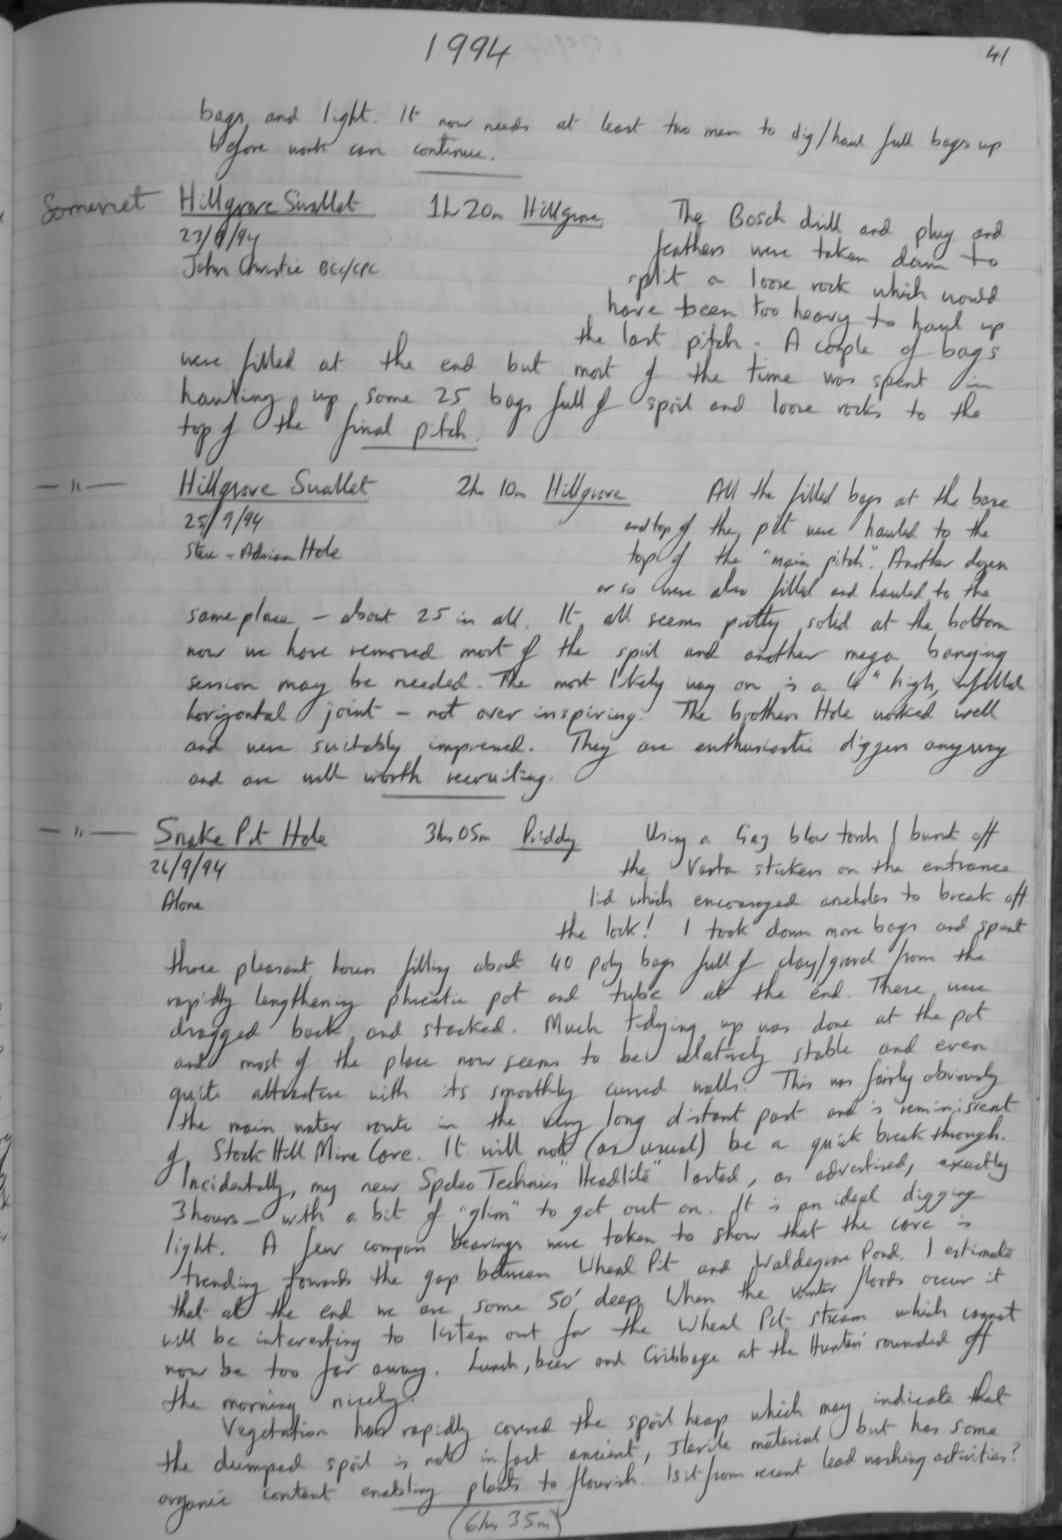 1994
41
bags and light. It now needs at least two men to dig/haul full bags up
before work can continue.
Somerset Hillgrove Swallet 1h 20m Hillgrove The Bosch drill and plug and
23/9/94 feathers were taken down to
John Christie BCC/CPC split a loose rock which would
have been too heavy to haul up
the last pitch. A couple of bags
were filled at the end but most of the time was spent in
hauling up some 25 bags full of spoil and loose rocks to the
top of the final pitch.
— " — Hillgrove Swallet 2h 10m Hillgrove All the filled bags at the base
25/9/94 and top of the pit were hauled to the
Steve - Adrian Hole top of the "main pitch". Another dozen
or so were also filled and hauled to the
same place - about 25 in all. It all seems pretty solid at the bottom
now we have removed most of the spoil and another mega banging
session may be needed. The most likely way on is a 4" high, infilled
horizontal joint - not over inspiring. The brothers Hole worked well
and were suitably impressed. They are enthusiastic diggers anyway
and are well worth recruiting.
— " — Snake Pit Hole 3hrs 05m Priddy Using a Gaz blow torch I burnt off
26/9/94 the Varta stickers on the entrance
Alone lid which encouraged arseholes to break off
the lock! I took down more bags and spent
three pleasant hours filling about 40 poly bags full of clay/gravel from the
rapidly lengthening phreatic pot and tube at the end. These were
dragged back and stacked. Much tidying up was done at the pot
and most of the place now seems to be relatively stable and even
quite attractive with its smoothly curved walls. This was fairly obviously
the main water route in the very long distant past and is reminiscent
of Stock Hill Mine Cave. It will not (as usual) be a quick breakthrough.
Incidentally, my new Speleo Technics "Headlite" lasted, as advertised, exactly
3 hours - with a bit of "glim" to get out on. It is an ideal digging
light. A few compass bearings were taken to show that the cave is
trending towards the gap between Wheal Pit and Waldegrave Pond. I estimate
that at the end we are some 50' deep. When the winter floods occur it
will be interesting to listen out for the Wheal Pit stream which cannot
now be too far away. Lunch, beer and Cribbage at the Hunters' rounded off
the morning nicely.
Vegetation has rapidly covered the spoil heap which may indicate that
the dumped spoil is not in fact ancient, sterile material but has some
organic content enabling plants to flourish. Is it from recent lead washing activities?
(6hrs 35m)